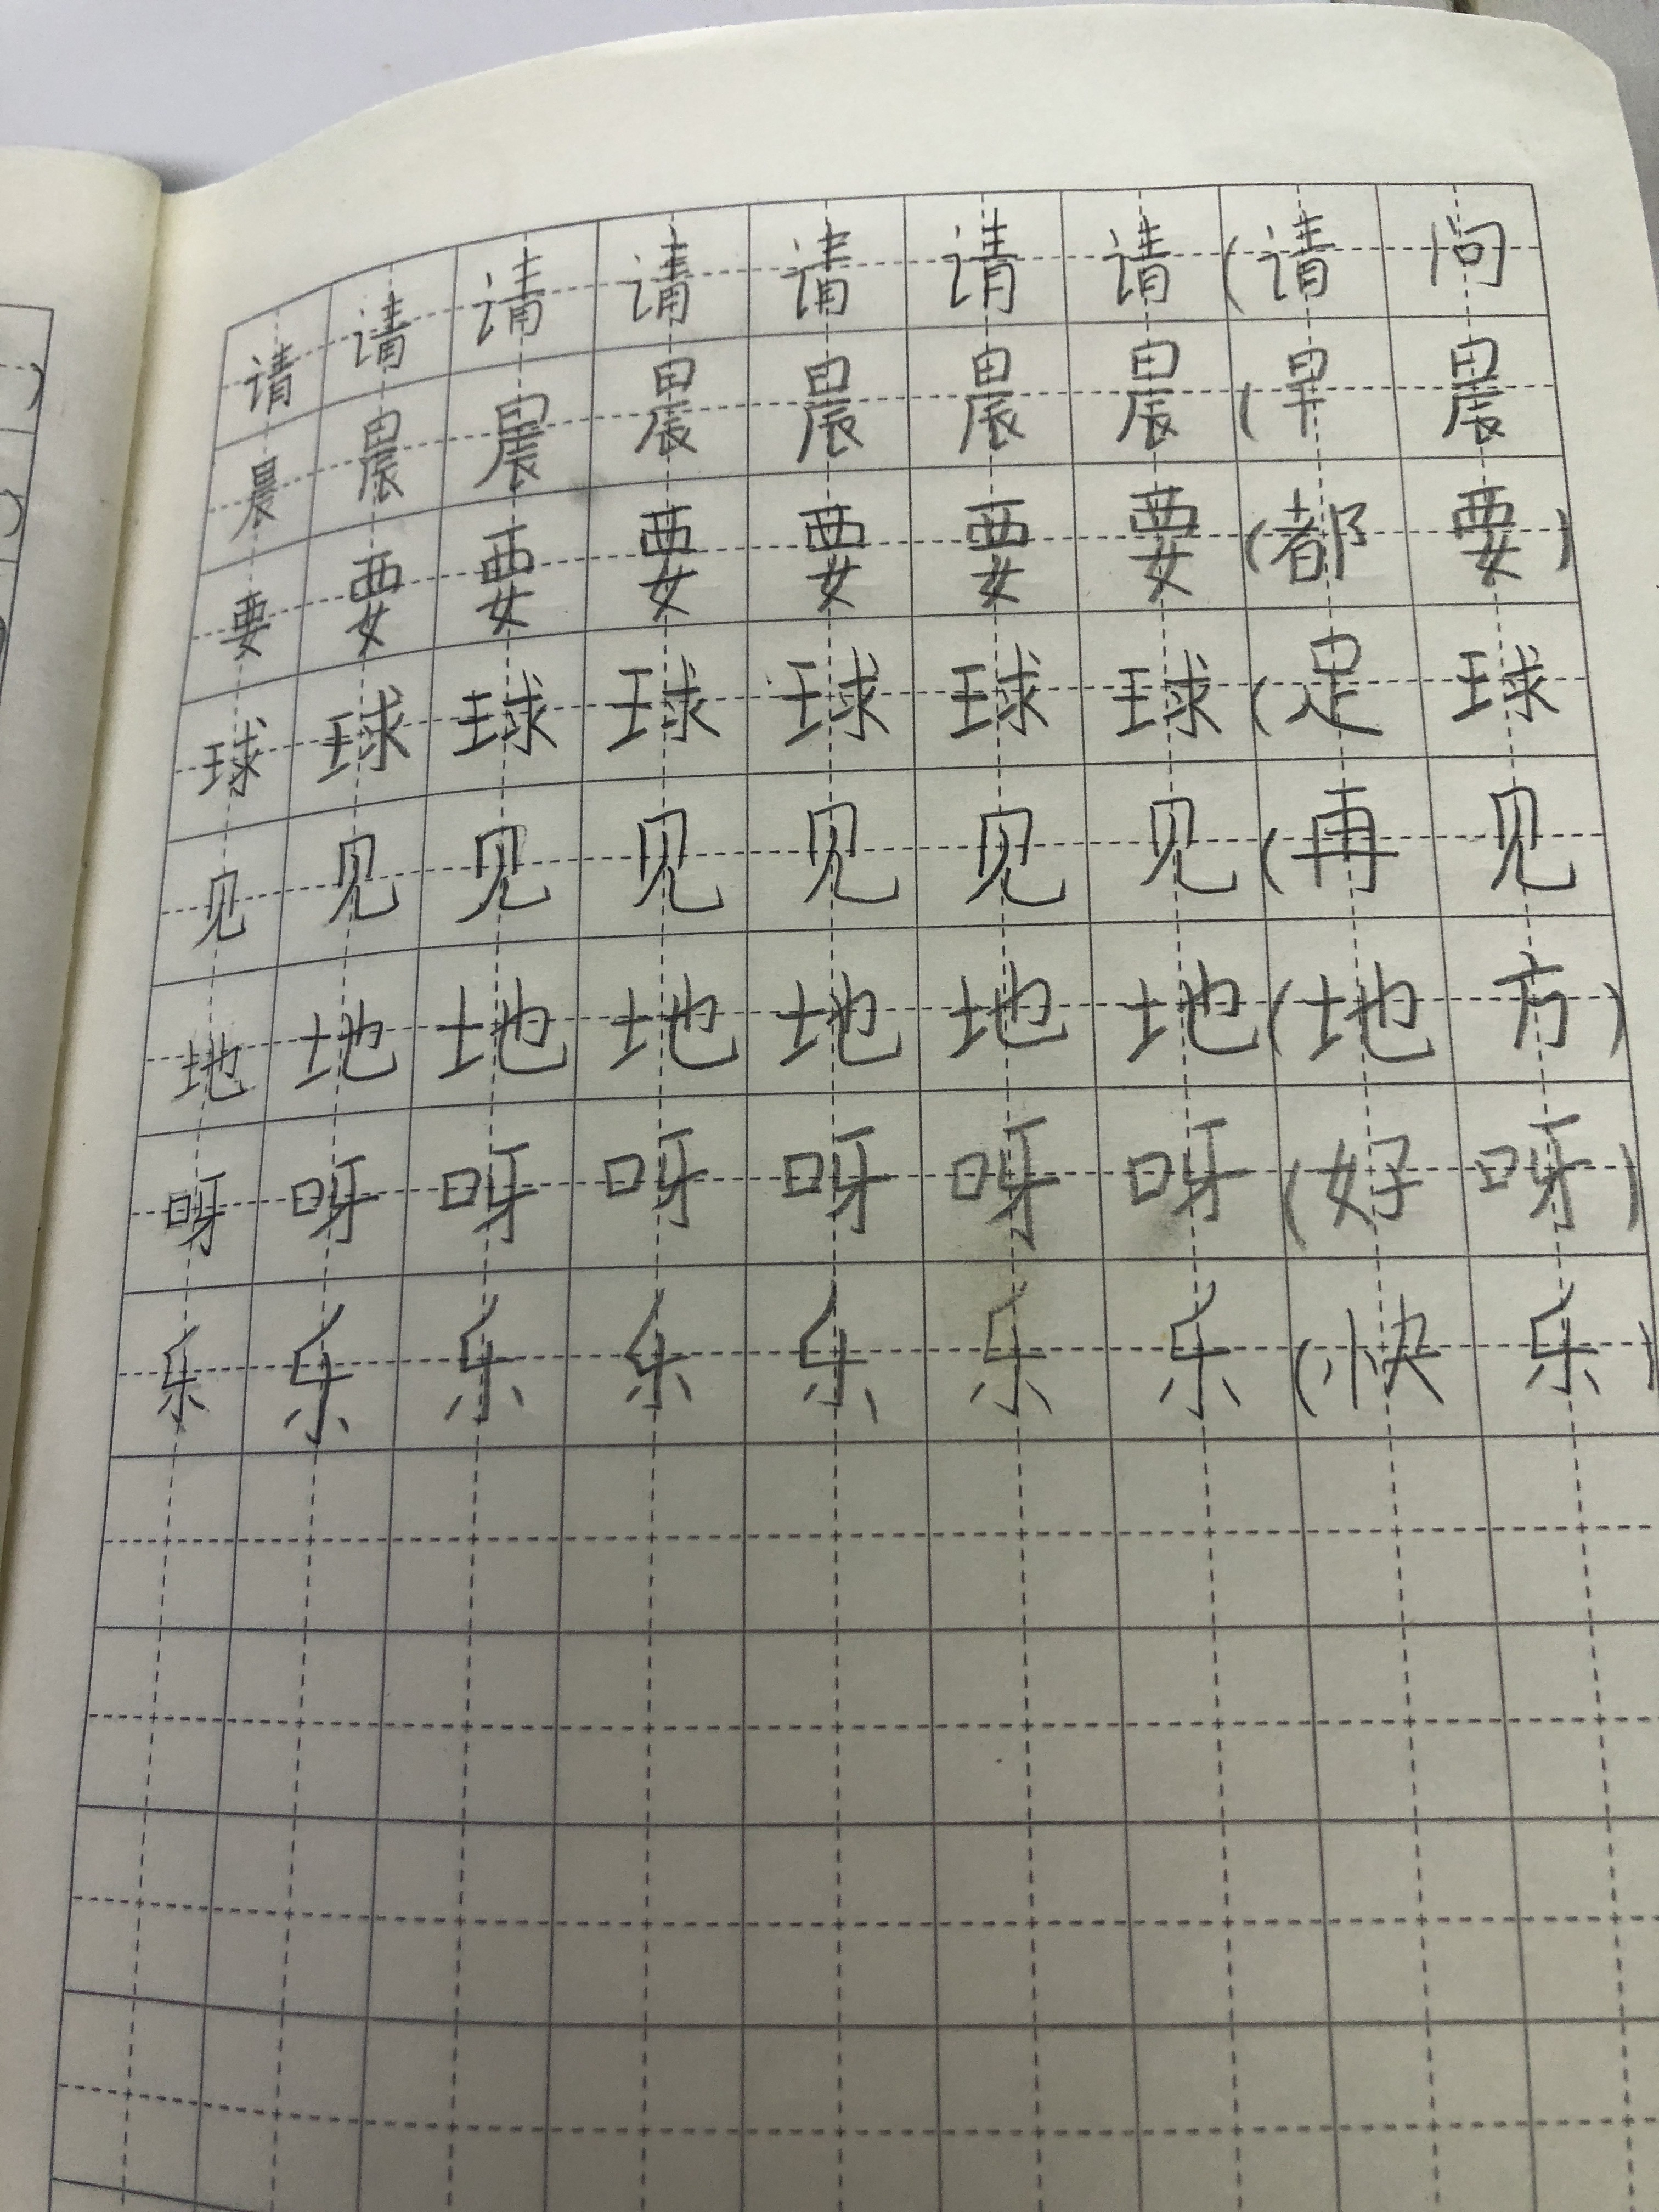 请请请请请请请(请问
晨晨晨晨晨晨晨(早晨
要要要要要要要(都要)
球球球球球球球(足球
见见见见见见见(再见
地地地地地地地(地方)
呀呀呀呀呀呀呀(好呀)
乐乐乐乐乐乐乐(快乐)